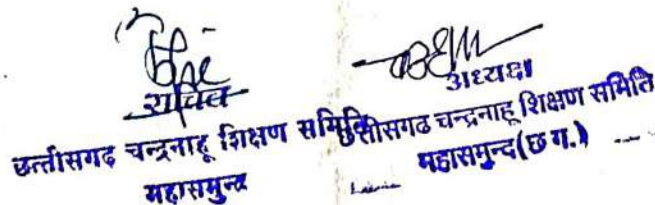 सचिव
छत्तीसगढ़ चन्द्रनाहू शिक्षण समिति
महासमुन्द
अध्यक्ष
छत्तीसगढ चन्द्रनाहू शिक्षण समिति
महासमुन्द(छ ग.)